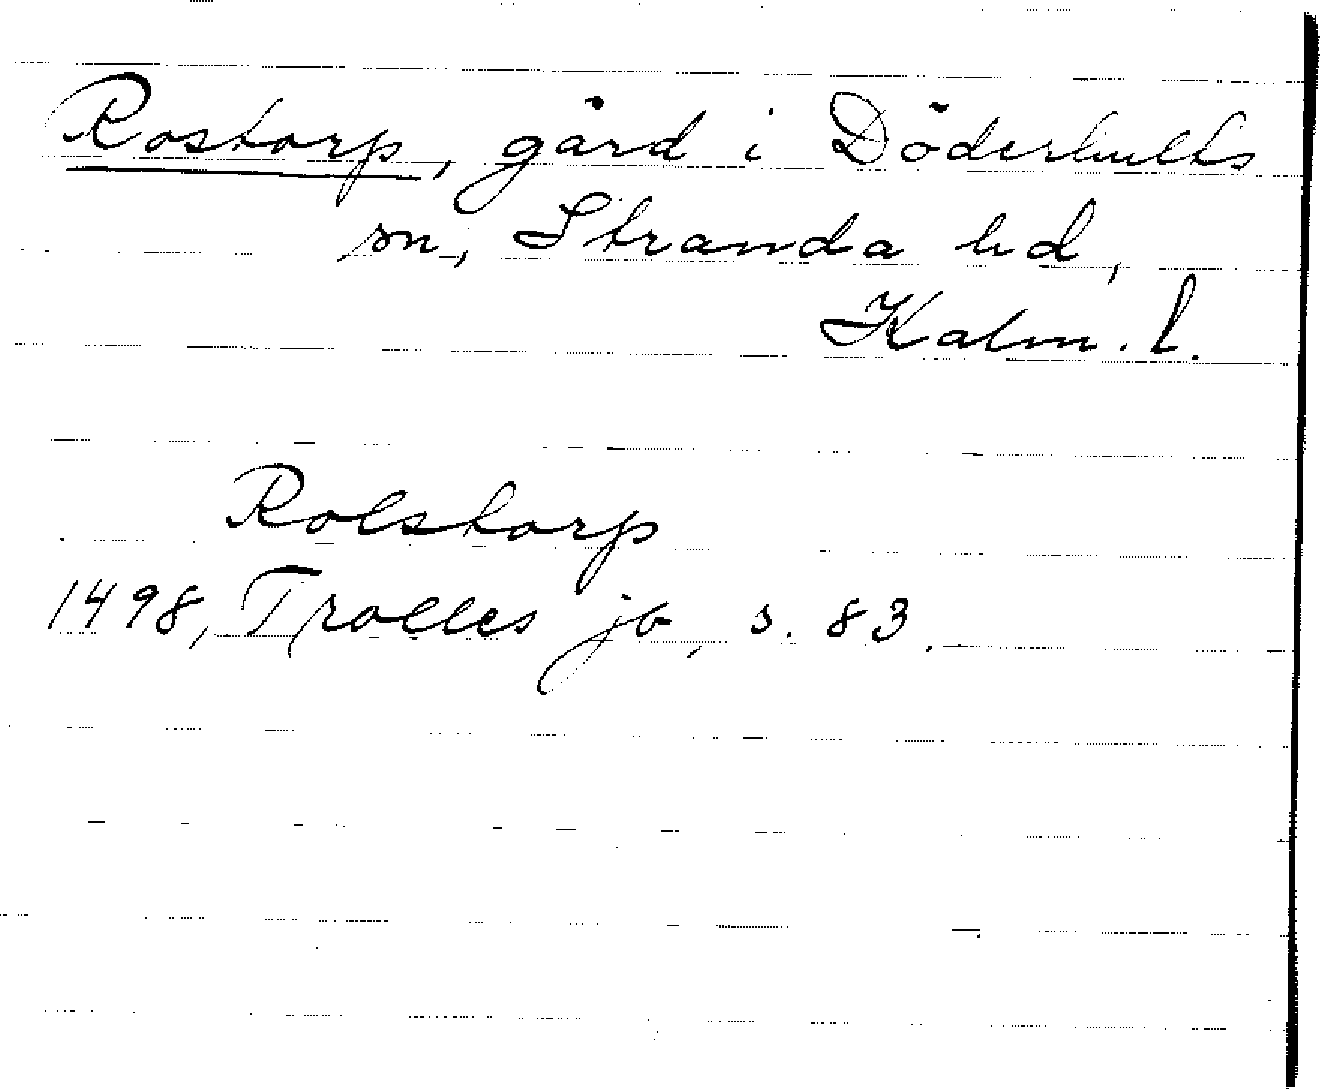 Rostorp, gård i Döderhults
sn, Stranda hd,
Kalm. l.
Rolstorp
1498, Trolles jb, s. 83.